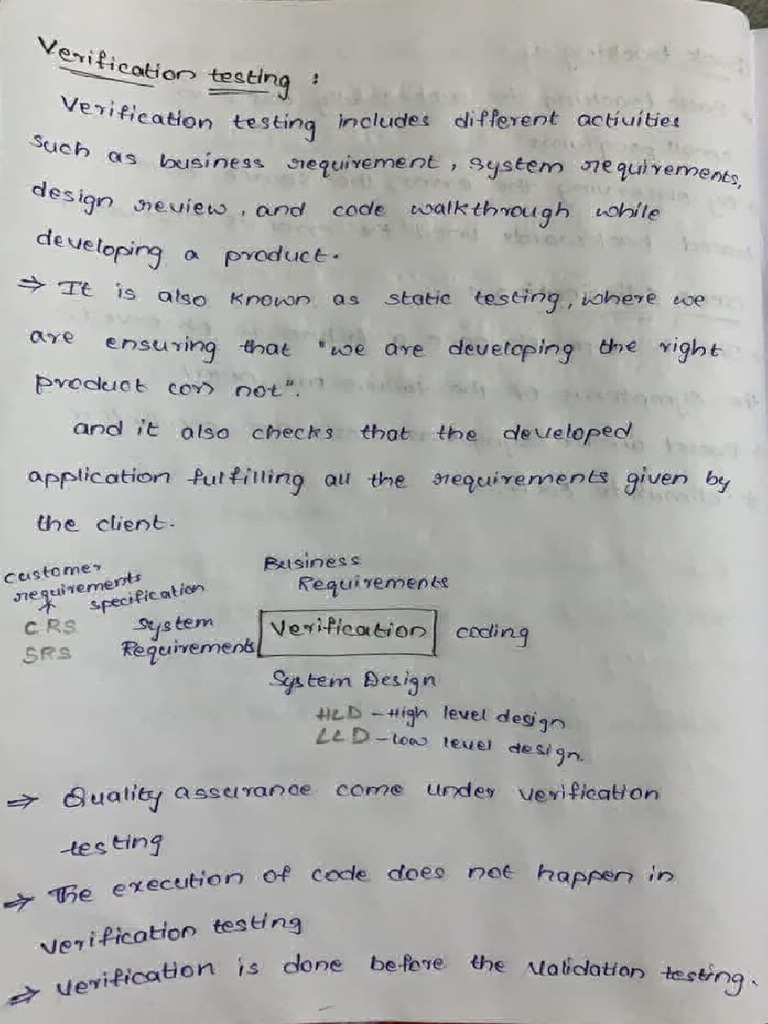 Verification testing :
Verification testing includes different activities
such as business requirement, system requirements,
design review, and code walkthrough while
developing a product.
⇒ It is also known as static testing, where we
are ensuring that "we are developing the right
product (or) not".
and it also checks that the developed
application fulfilling all the requirements given by
the client.
customer
requirements
specification
CRS
SRS
Business
Requirements
System
Requirements
Verification
coding
System Design
HLD - High level design
LLD - Low level design.
⇒ Quality assurance come under verification
testing
⇒ The execution of code does not happen in
verification testing
⇒ verification is done before the validation testing.